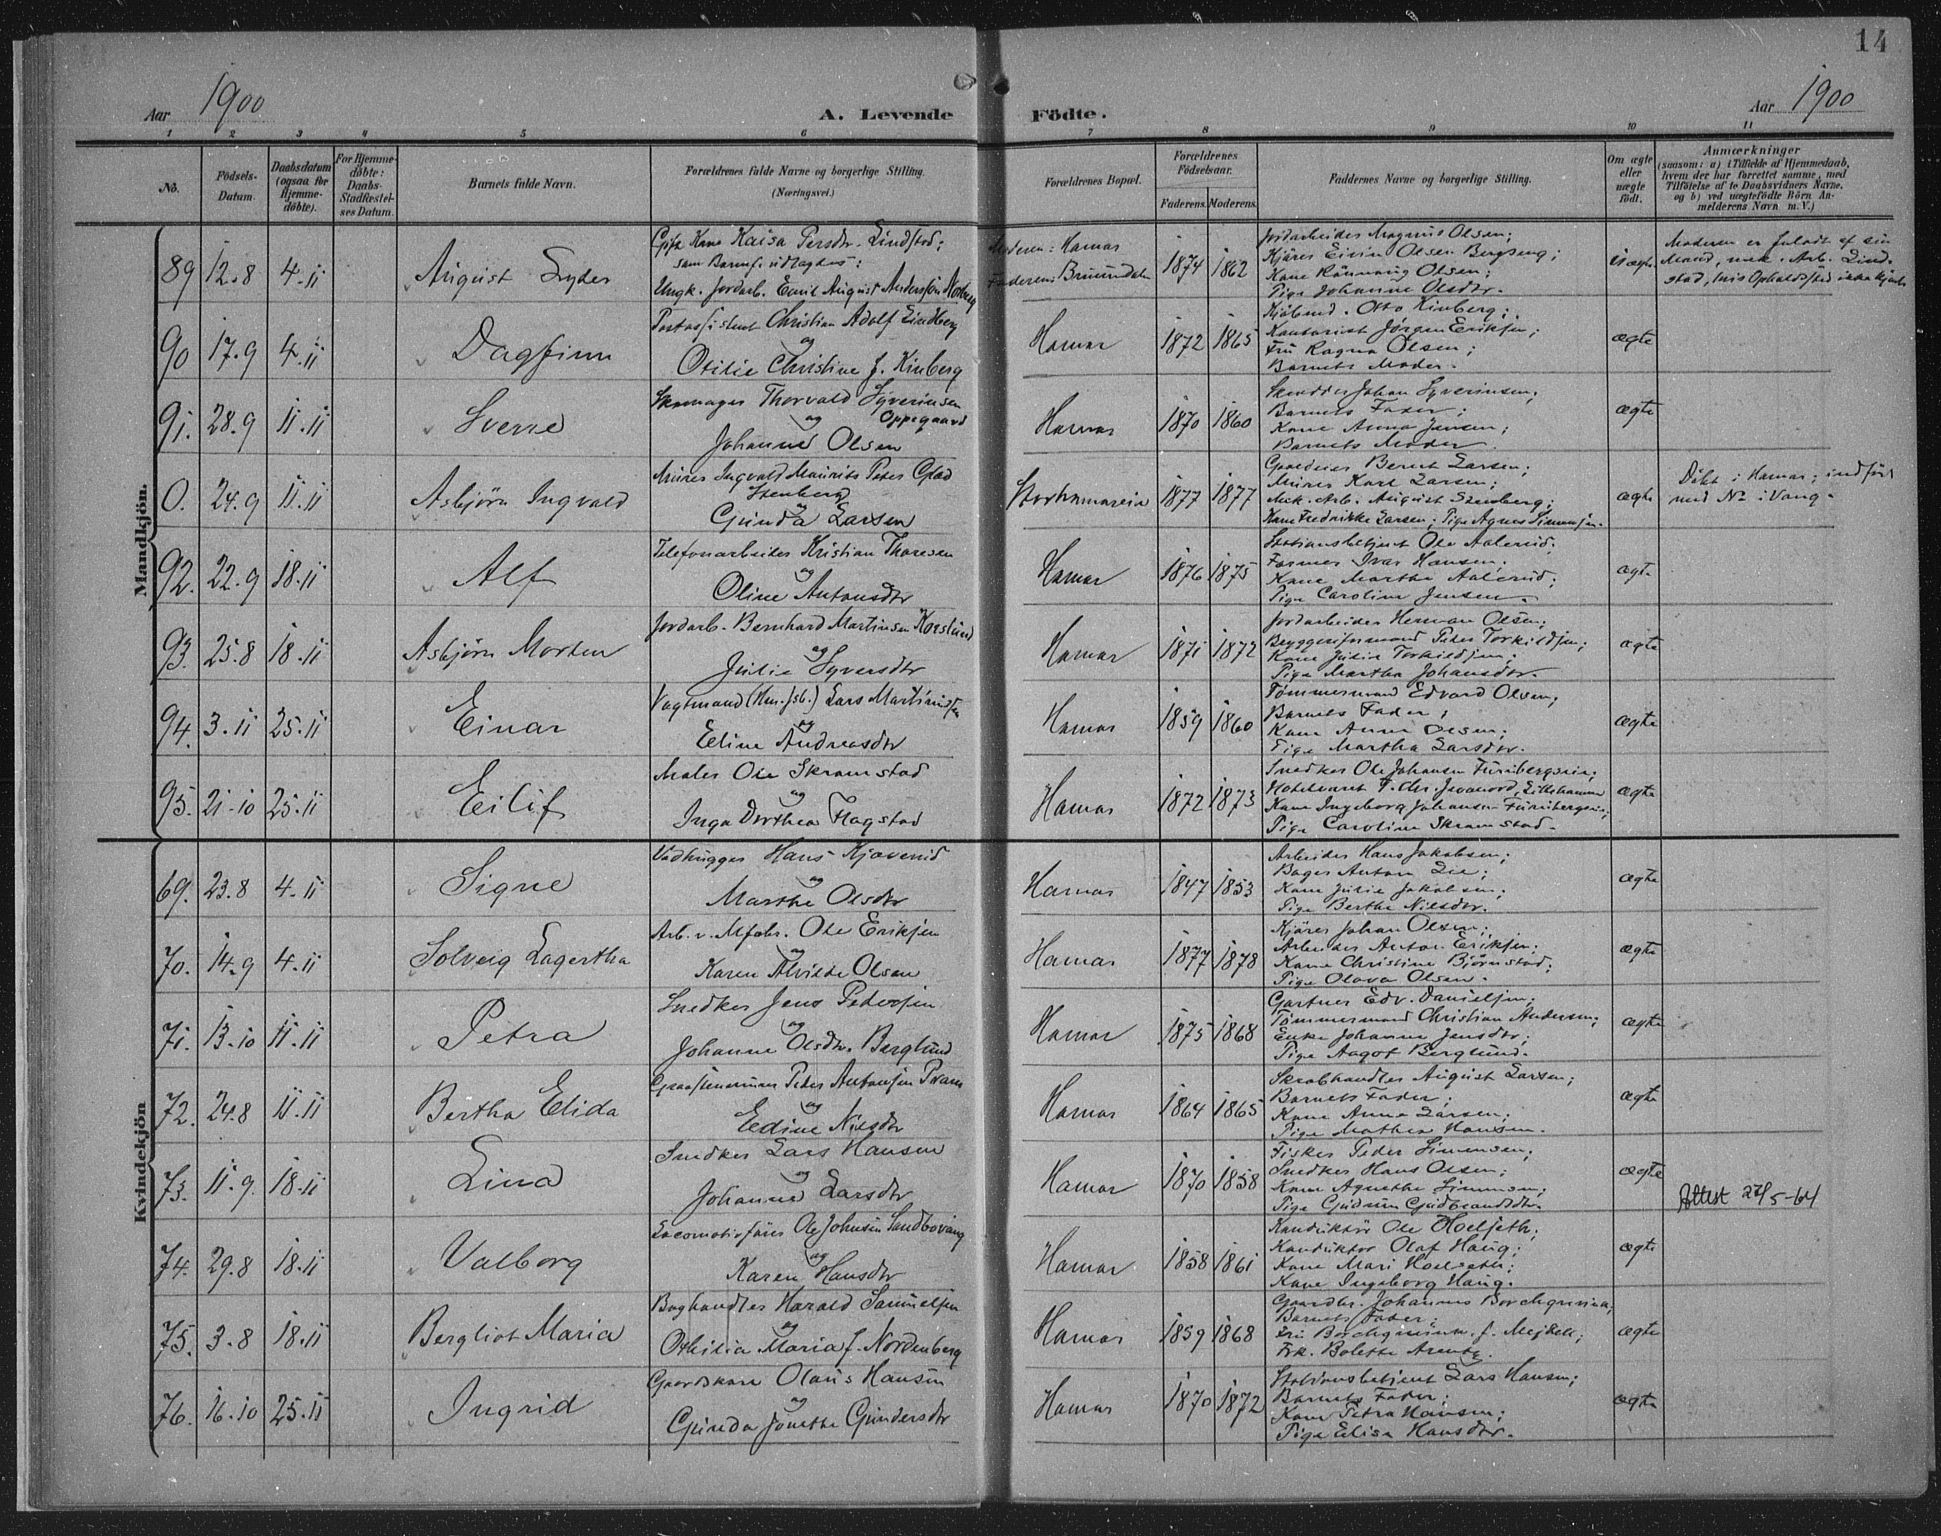 14
Aar 1900
A. Levende Fødte.
Aar 1900
1 2 3 4 5 6 7 8 9 10 11
No.
Fødsels-Datum.
Daabsdatum (ogsaa for Hjemme-døbte).
For Hjemme-døbte: Daabs-Stadfæstel-ses Datum.
Barnets fulde Navn.
Forældrenes fulde Navne og borgerlige Stilling. (Næringsvei.)
Forældrenes Bopæl.
Forældrenes Fødselsaar.
Faderens. Moderens.
Faddernes Navne og borgerlige Stilling.
Om ægte eller uægte født.
Anmærkninger
(saasom: a) i Tilfælde af Hjemmedaab, hvem der har forrettet samme, med Tilføielse af to Daabsvidners Navne, og b) ved uægtefødte Børn Anmelderens Navn m. V.)
Mandkjön.
89 12.8 4.11 August
Gift Kone Kaisa Persdtr. Lindstad;
som Barnef. udlagdes:
Ungk. Jordarb. Emil August Anderssøn
Moderen: Hamar
Faderen: Brumundalen
1874 1862
Jordarbeider Magnus Olsen;
Kjører Eivin Olsen Bergseng;
Kone Rønnaug Olsen;
Pige Johanne Olsdtr.
uægte
Moderen er forladt af sin
Mand, mek. Arb. Lindstad, hvis Opholdssted ikke kjendes
90 17.9 4.11 Dagfinn
Postassistent Christian Adolf Lindberg
og
Otilie Christine f. Kinberg
Hamar 1872 1865
Kjøbmd. Otto Kinberg;
Kontorist Jørgen Eriksen;
Fru Ragna Olsen;
Barnets Moder.
ægte
91. 28.9 11.11 Sverre
Skomager Thorvald Syverinsen Oppegaard
og
Johanne Olsen
Hamar 1870 1860
Skrædder Johan Syverinsen;
Barnets Fader;
Kone Anna Jensen;
Barnets Moder.
ægte
0. 24.9 11.11 Asbjørn Ingvald
Murer Ingvald Maurits Peter Olad Stenberg
og
Gunda Larsen
Storhamareie 1877 1877
Gaardeier Bernt Larsen;
Murer Karl Larsen;
Mek. Arb. August Stenberg;
Kone Fredrikke Larsen; Pige Agnes Simensen.
ægte
Døbt i Hamar; indført
med No i Vang.
92. 22.9 18.11 Alf
Telefonarbeider Kristian Thoresen
og
Oline Antonsdtr
Hamar 1876 1875
Stationsbetjent Ole Aalerud;
Former Ivar Hansen;
Kone Marthe Aalerud;
Pige Caroline Jensen.
ægte
93. 25.8 18.11 Asbjørn Morten
Jordarb. Bernhard Martinsen Korslund
og
Julie Syversdtr
Hamar 1871 1872
Jordarbeider Herman Olsen;
Bryggeriformand Peder Torkildsen;
Kone Julie Torkildsen;
Pige Martha Johansdtr.
ægte
94. 3.11 25.11 Einar
Vagtmand Lars Martiniussen
og
Eline Andreasdtr
Hamar 1859 1860
Tømmermand Edvard Olsen;
Barnets Fader;
Kone Anne Olsen;
Pige Martha Larsdtr.
ægte
95. 21.10 25.11 Eilif
Maler Ole Skramstad
og
Inga Dorthea Flagstad
Hamar 1872 1873
Snedker Ole Johansen Furubergeie;
Lillehammer
Kone Ingeborg Johansen Furubergeie;
Pige Caroline Skramstad.
ægte
Kvindekjön
69. 23.8 4.11 Signe
Vedhugger Hans Kjøverud
og
Marthe Olsdtr
Hamar 1847 1853
Arbeider Hans Jakobsen;
Bager Anton Lie;
Kone Julie Jakobsen;
Pige Berthe Nilsdtr.
ægte
70. 14.9 4.11 Solveig Lagertha
Arb. v. Mfabr. Ole Eriksen
og
Karen Alvilde Olsen
Hamar 1877 1878
Kjører Johan Olsen;
Arbeider Anton Eriksen;
Kone Christine Bjørnstad;
Pige Olava Olsen.
ægte
71. 13.10 11.11 Petra
Snedker Jens Pedersen
og
Johanne Olsdtr. Berglund
Hamar 1875 1868
Gartner Edv. Danielsen;
Tømmermand Christian Andersen;
Enke Johanne Jensdtr;
Pige Aagot Berglund.
ægte
72. 24.8 11.11 Bertha Elida
Peder Antonsen
og
Edine Nilsdtr
Hamar 1864 1865
Skrabhandler August Larsen;
Barnets Fader;
Kone Anne Larsen;
Pige Mathea Hansen.
ægte
73. 11.9. 18.11 Lina
Snedker Lars Hansen
og
Johanne Larsdtr
Hamar 1870 1858
Fisker Peder Simensen;
Snedker Hans Olsen;
Kone Agnethe Simensen;
Pige Gudrun Gudbrandsdtr.
ægte
Attest 27/5-64
74. 29.8 18.11 Valborg
Locomotivfører Ole Johnsen Sandbovang
og
Karen Hansdtr
Hamar 1858 1861
Konduktør Ole Hoelseth;
Konduktør Olaf Haug;
Kone Mari Hoelseth;
Kone Ingeborg Haug.
ægte
75. 3.8 18.11 Bergliot Maria
Boghandler Harald Samuelsen
og
Othilia Maria f. Nordenberg
Hamar 1859 1868
Gaardbr. Johannes Borchgrevink;
Barnets Fader;
Fru Borchgrevink f.
Frk. Bolette Arentz.
ægte
76. 16.10 25.11 Ingrid
Gaardskar Olaus Hansen
og
Gunda Jonette Gundersdtr
Hamar 1870 1872
Stationsbetjent Lars Hansen;
Barnets Fader;
Kone Petra Hansen;
Pige Elise Hansdtr.
ægte